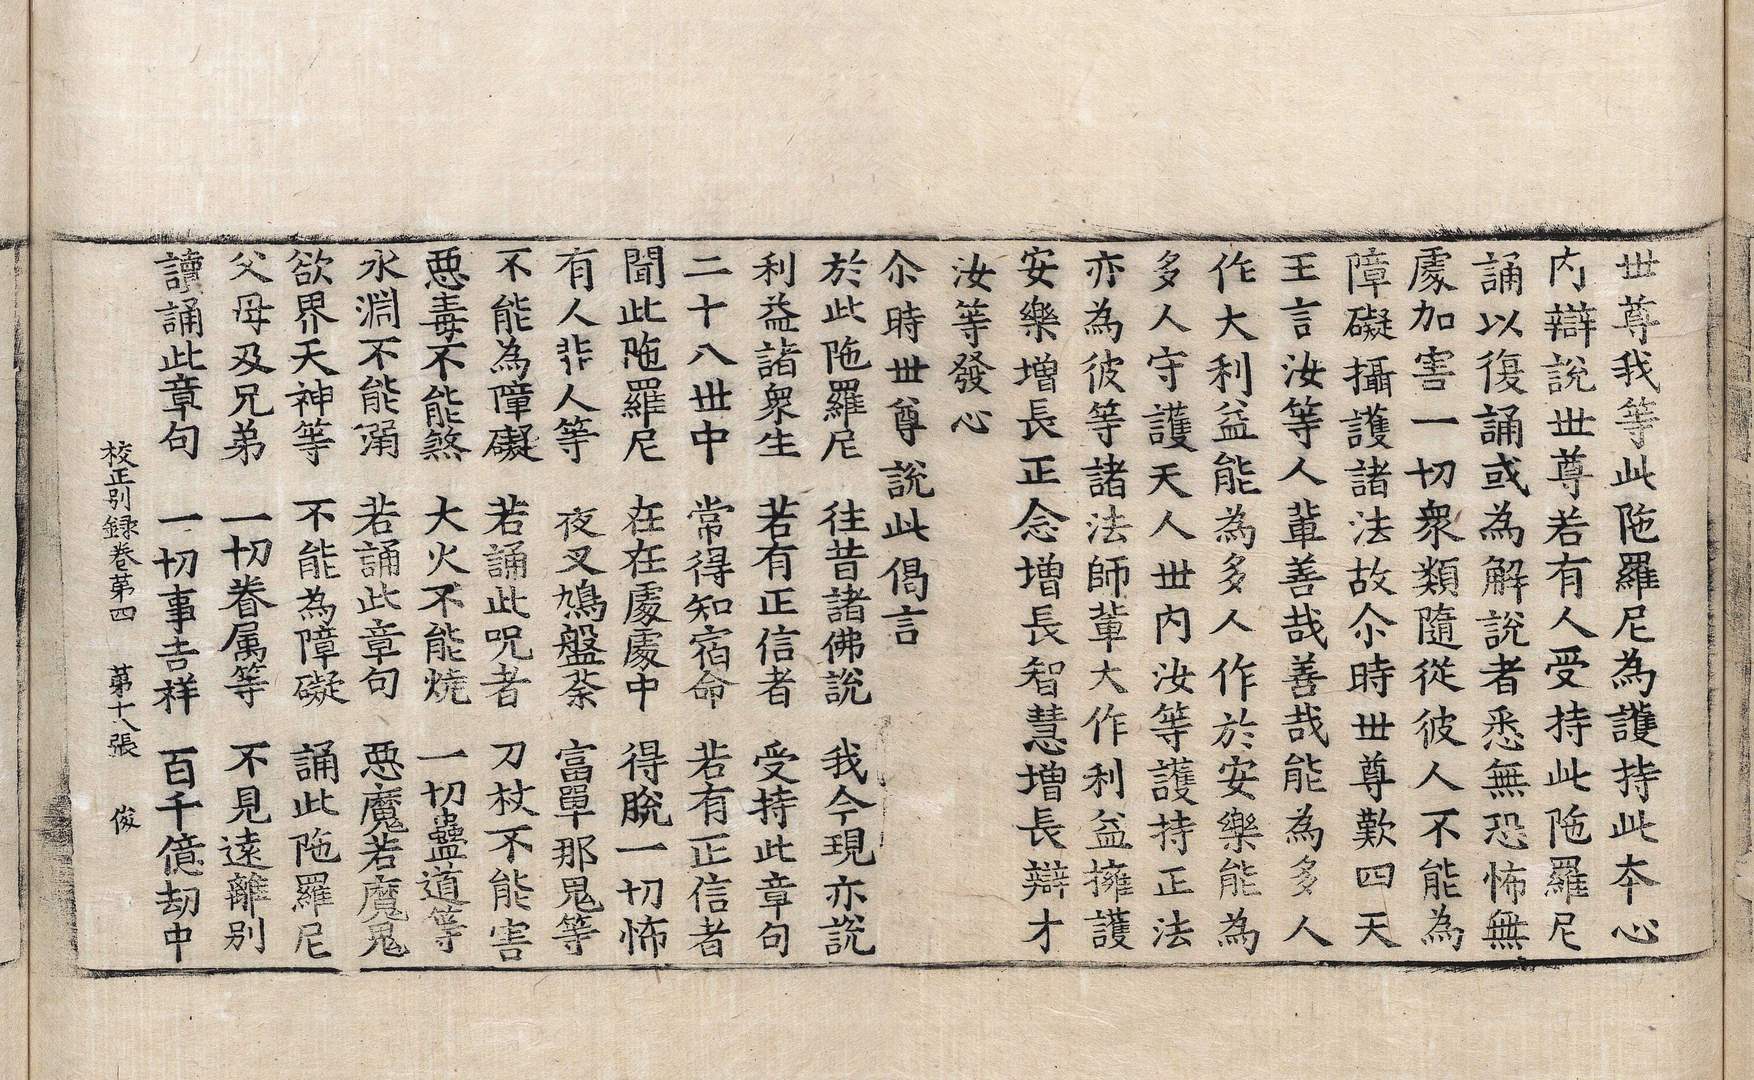 世尊我等此陁羅尼為護持此夲心
内辯說世尊若有人受持此陁羅尼
誦以復誦或為解說者悉無恐怖無
處加害一切衆類隨從彼人不能為
障礙攝護諸法故尒時世尊歎四天
王言汝等人輩善哉善哉能為多人
作大利益能為多人作於安樂能為
多人守護天人世内汝等護持正法
亦為彼等諸法師輩大作利益擁護
安樂增長正念增長智慧增長辯才
汝等發心
尒時世尊說此偈言
於此陁羅尼　往昔諸佛說　我今現亦說
利益諸衆生　若有正信者　受持此章句
二十八世中　常得知宿命　若有正信者
聞此陁羅尼　在在處處中　得脫一切怖
有人非人等　夜叉鳩盤茶　富單那鬼等
不能為障礙　若誦此呪者　刀杖不能害
惡毒不能煞　大火不能燒　一切蠱道等
水淵不能溺　若誦此章句　惡魔若魔鬼
欲界天神等　不能為障礙　誦此陁羅尼
父母及兄弟　一切眷属等　不見遠離别
讀誦此章句　一切事吉祥　百千億劫中
校正别録卷苐四　苐十八張　俊